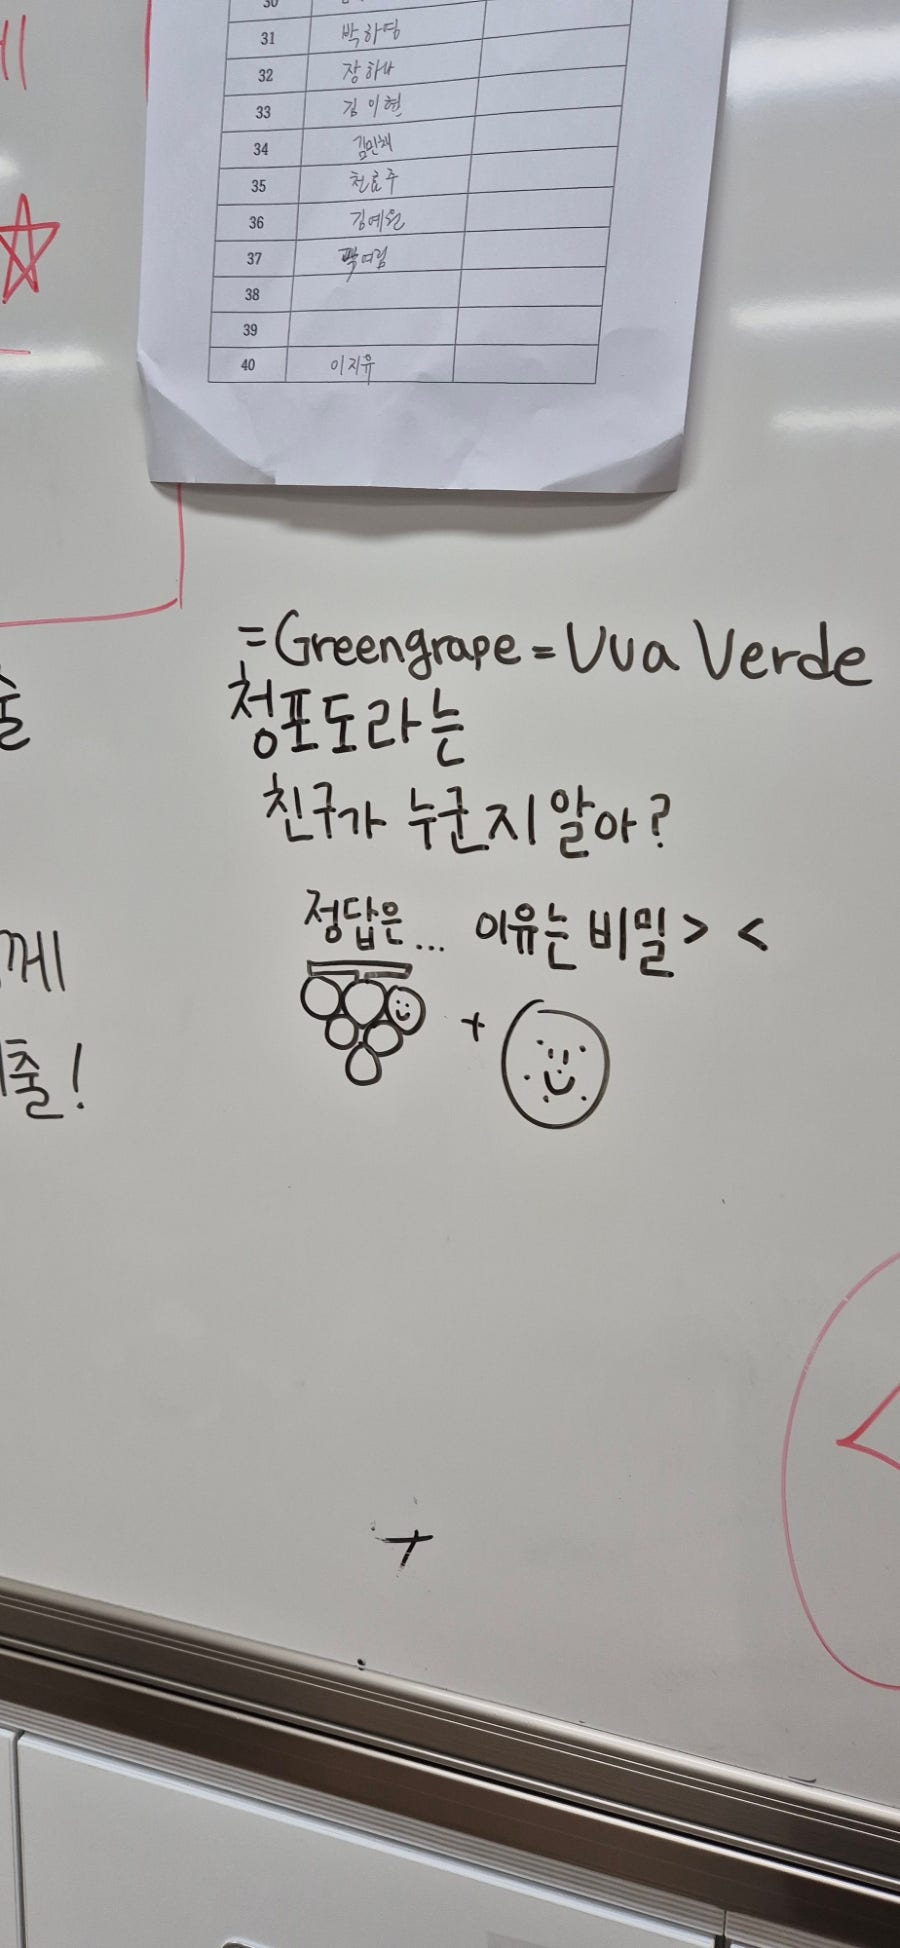 31 박하영
32 장하나
33 김이현
34 김민채
35
36 김예원
37
38
39
40 이지유
=Greengrape = Uva Verde
청포도라는
친구가 누군지 알아?
정답은... 이유는 비밀> <
+
께
출!